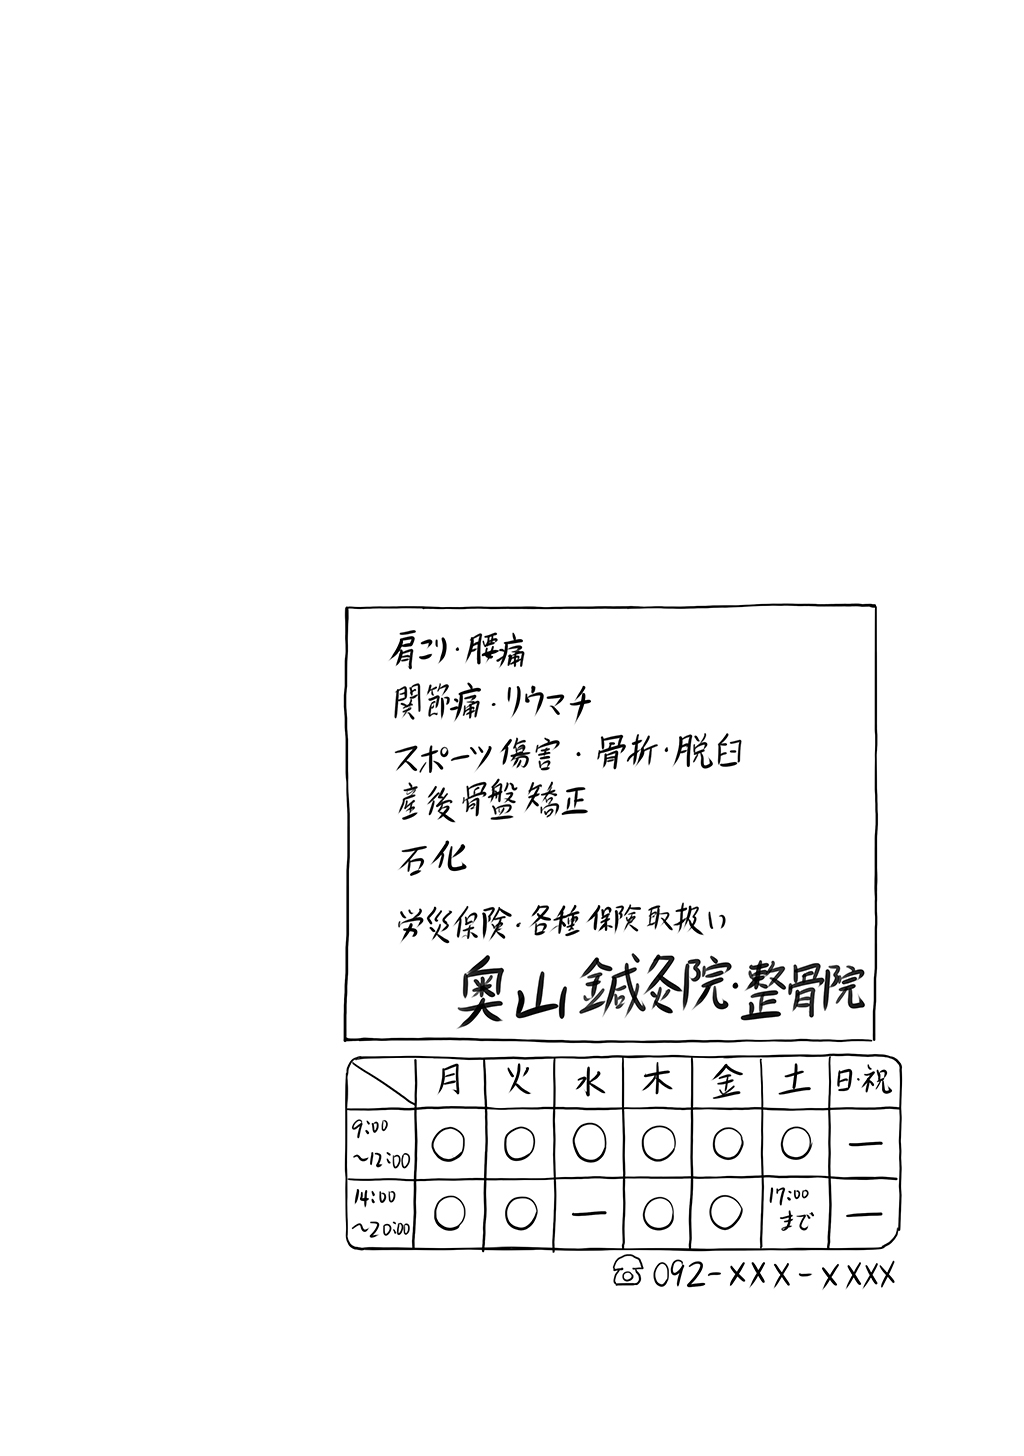 肩こり・腰痛
関節痛・リウマチ
スポーツ傷害・骨折・脱臼
産後骨盤矯正
石化
労災保険・各種保険取扱い
奥山鍼灸院・整骨院
月 火 水 木 金 土 日・祝
9:00 〜12:00 ○ ○ ○ ○ ○ ○ ー
14:00 〜20:00 ○ ○ ー ○ ○ 17:00 まで ー
☎ 092-XXX-XXXX